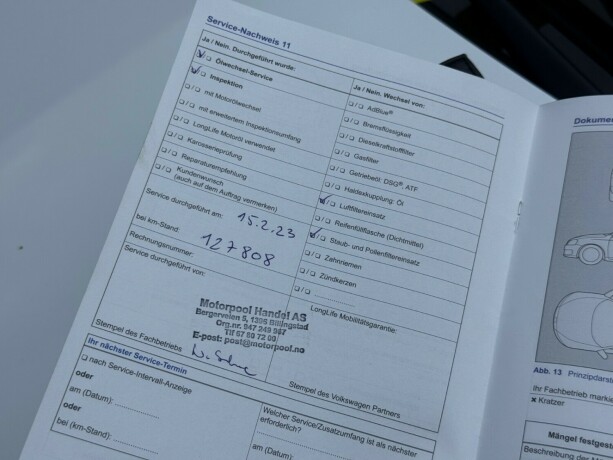 Service-Nachweis 11
Ja / Nein. Durchgeführt wurde:
Ölwechsel-Service
Inspektion
mit Motorölwechsel
mit erweitertem Inspektionsumfang
LongLife Motoröl verwendet
Karosserieprüfung
Reparaturempfehlung
Kundenwunsch
(auch auf dem Auftrag vermerken)
Service durchgeführt am: 15.2.23
bei km-Stand: 127808
Rechnungsnummer:
Service durchgeführt von:
Motorpool Handel AS
Bergerveien 5, 1396 Billingstad
Org.nr. 947 249 987
Tlf 67 80 72 00
E-post: post@motorpool.no
Stempel des Fachbetriebs
Ja / Nein. Wechsel von:
AdBlue®
Bremsflüssigkeit
Dieselkraftstofffilter
Gasfilter
Getriebeöl: DSG®, ATF
Haldexkupplung: Öl
Luftfiltereinsatz
Reifenfüllflasche (Dichtmittel)
Staub- und Pollenfiltereinsatz
Zahnriemen
Zündkerzen
LongLife Mobilitätsgarantie:
Stempel des Volkswagen Partners
Ihr nächster Service-Termin
nach Service-Intervall-Anzeige
oder
am (Datum):
oder
bei (km-Stand):
Welcher Service/Zusatzumfang ist als nächster
erforderlich?
am (Datum):
Abb. 13 Prinzipdarst
Ihr Fachbetrieb markie
× Kratzer
Mängel festgest